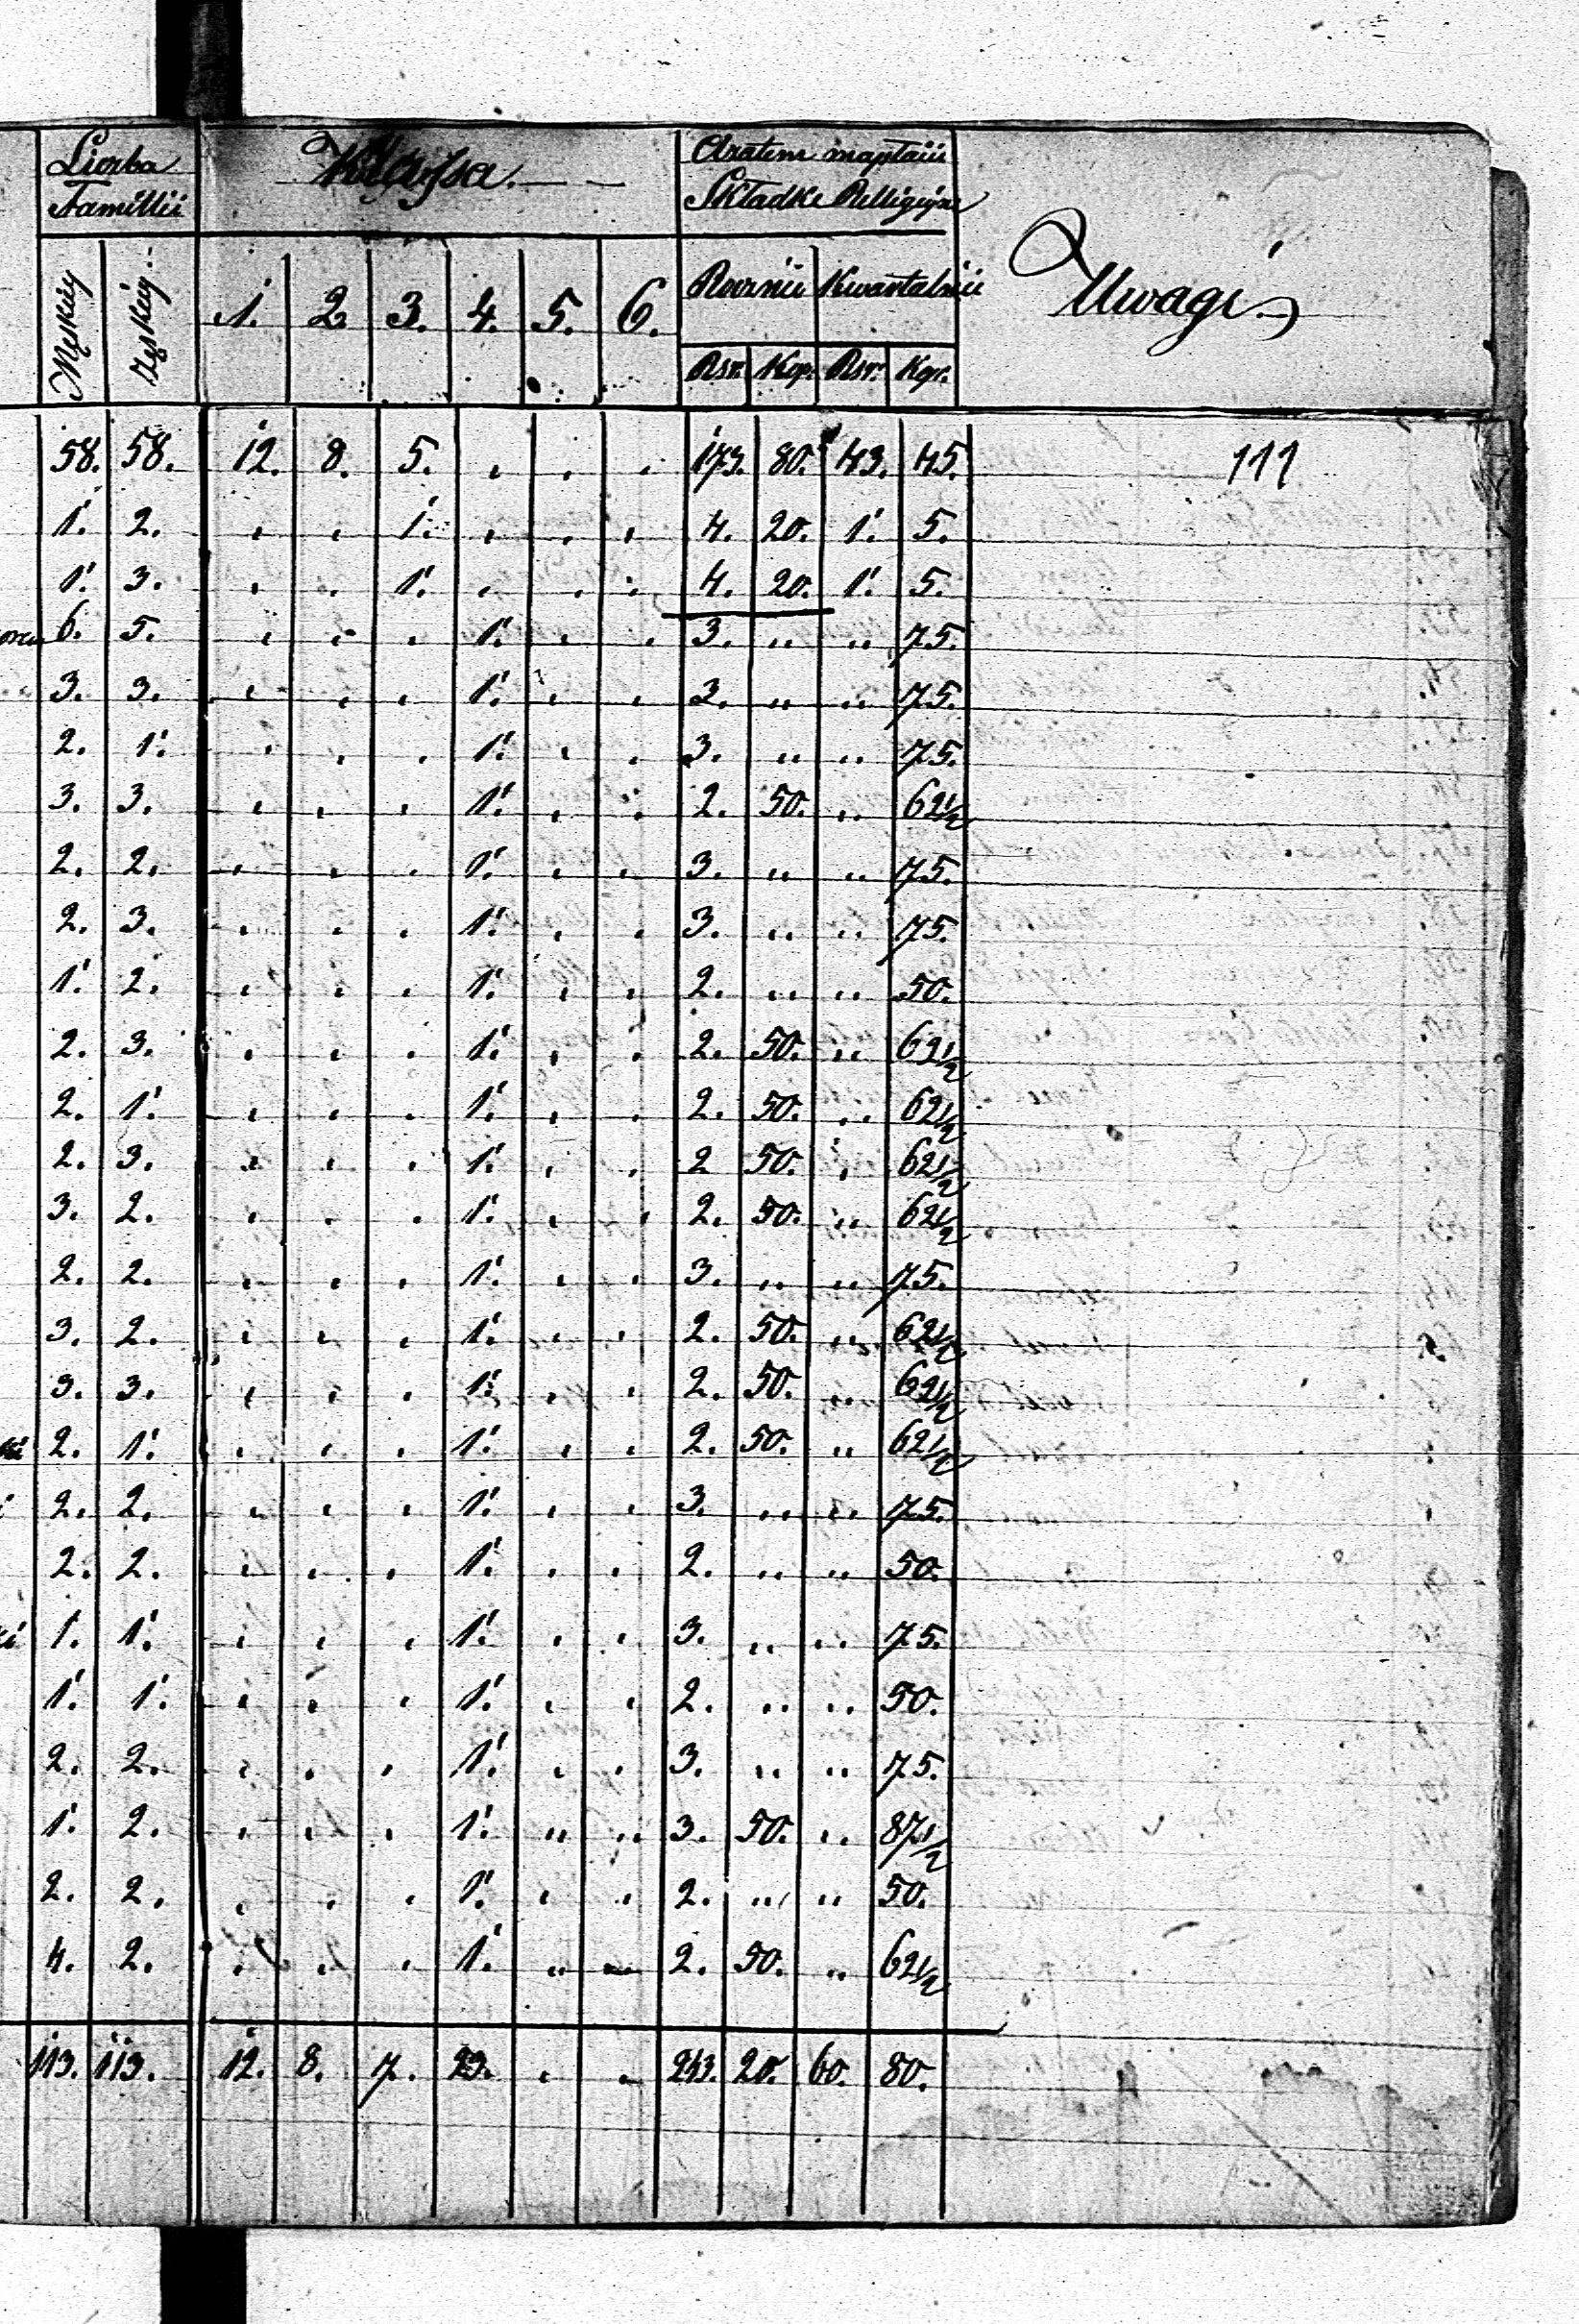 Liczba Klassa. Azatem
Familii Składke Relligijne
Męskiej Żeńskiej 1. 2. 3. 4. 5. 6. Rocznie Kwartalnie Uwagi
Rsr. Kop. Rsr. Kop.
58. 58. 12. 8. 5. . . . 173. 80. 43. 45. 111
1. 2. . . 1. . . . 4. 20. 1. 5.
1. 3. . . 1. . . . 4. 20. 1. 5.
6. 5. . . . 1. . . 3. " " 75.
3. 3. . . . 1. . . 3. " " 75.
2. 1. . . . 1. . . 3. " " 75.
3. 3. . . . 1. . . 2. 50. " 62 1/2
2. 2. . . . 1. . . 3. " " 75.
2. 3. . . . 1. . . 3. " " 75.
1. 2. . . . 1. . . 2. " " 50.
2. 3. . . . 1. . . 2. 50. " 62 1/2
2. 1. . . . 1. . . 2. 50. " 62 1/2
2. 3. . . . 1. . . 2 50. " 62 1/2
3. 2. . . . 1. . . 2. 50. " 62 1/2
2. 2. . . . 1. . . 3. " " 75.
3. 2. . . . 1. . . 2. 50. " 62 1/2
3. 3. . . . 1. . . 2. 50. " 62 1/2
2. 1. . . . 1. . . 2. 50. " 62 1/2
2. 2. . . . 1. . . 3. " " 75.
2. 2. . . . 1. . . 2. " " 50.
1. 1. . . . 1. . . 3. " " 75.
1. 1. . . . 1. . . 2. " " 50.
2. 2. . . . 1. . . 3. " " 75.
1. 2. . . . 1. " " 3. 50. " 87 1/2
2. 2. . . . 1. . . 2. " " 50.
4. 2. . . . 1. " " 2. 50. " 62 1/2
113. 113. 12. 8. 7. 23. . . 243. 20. 60. 80.